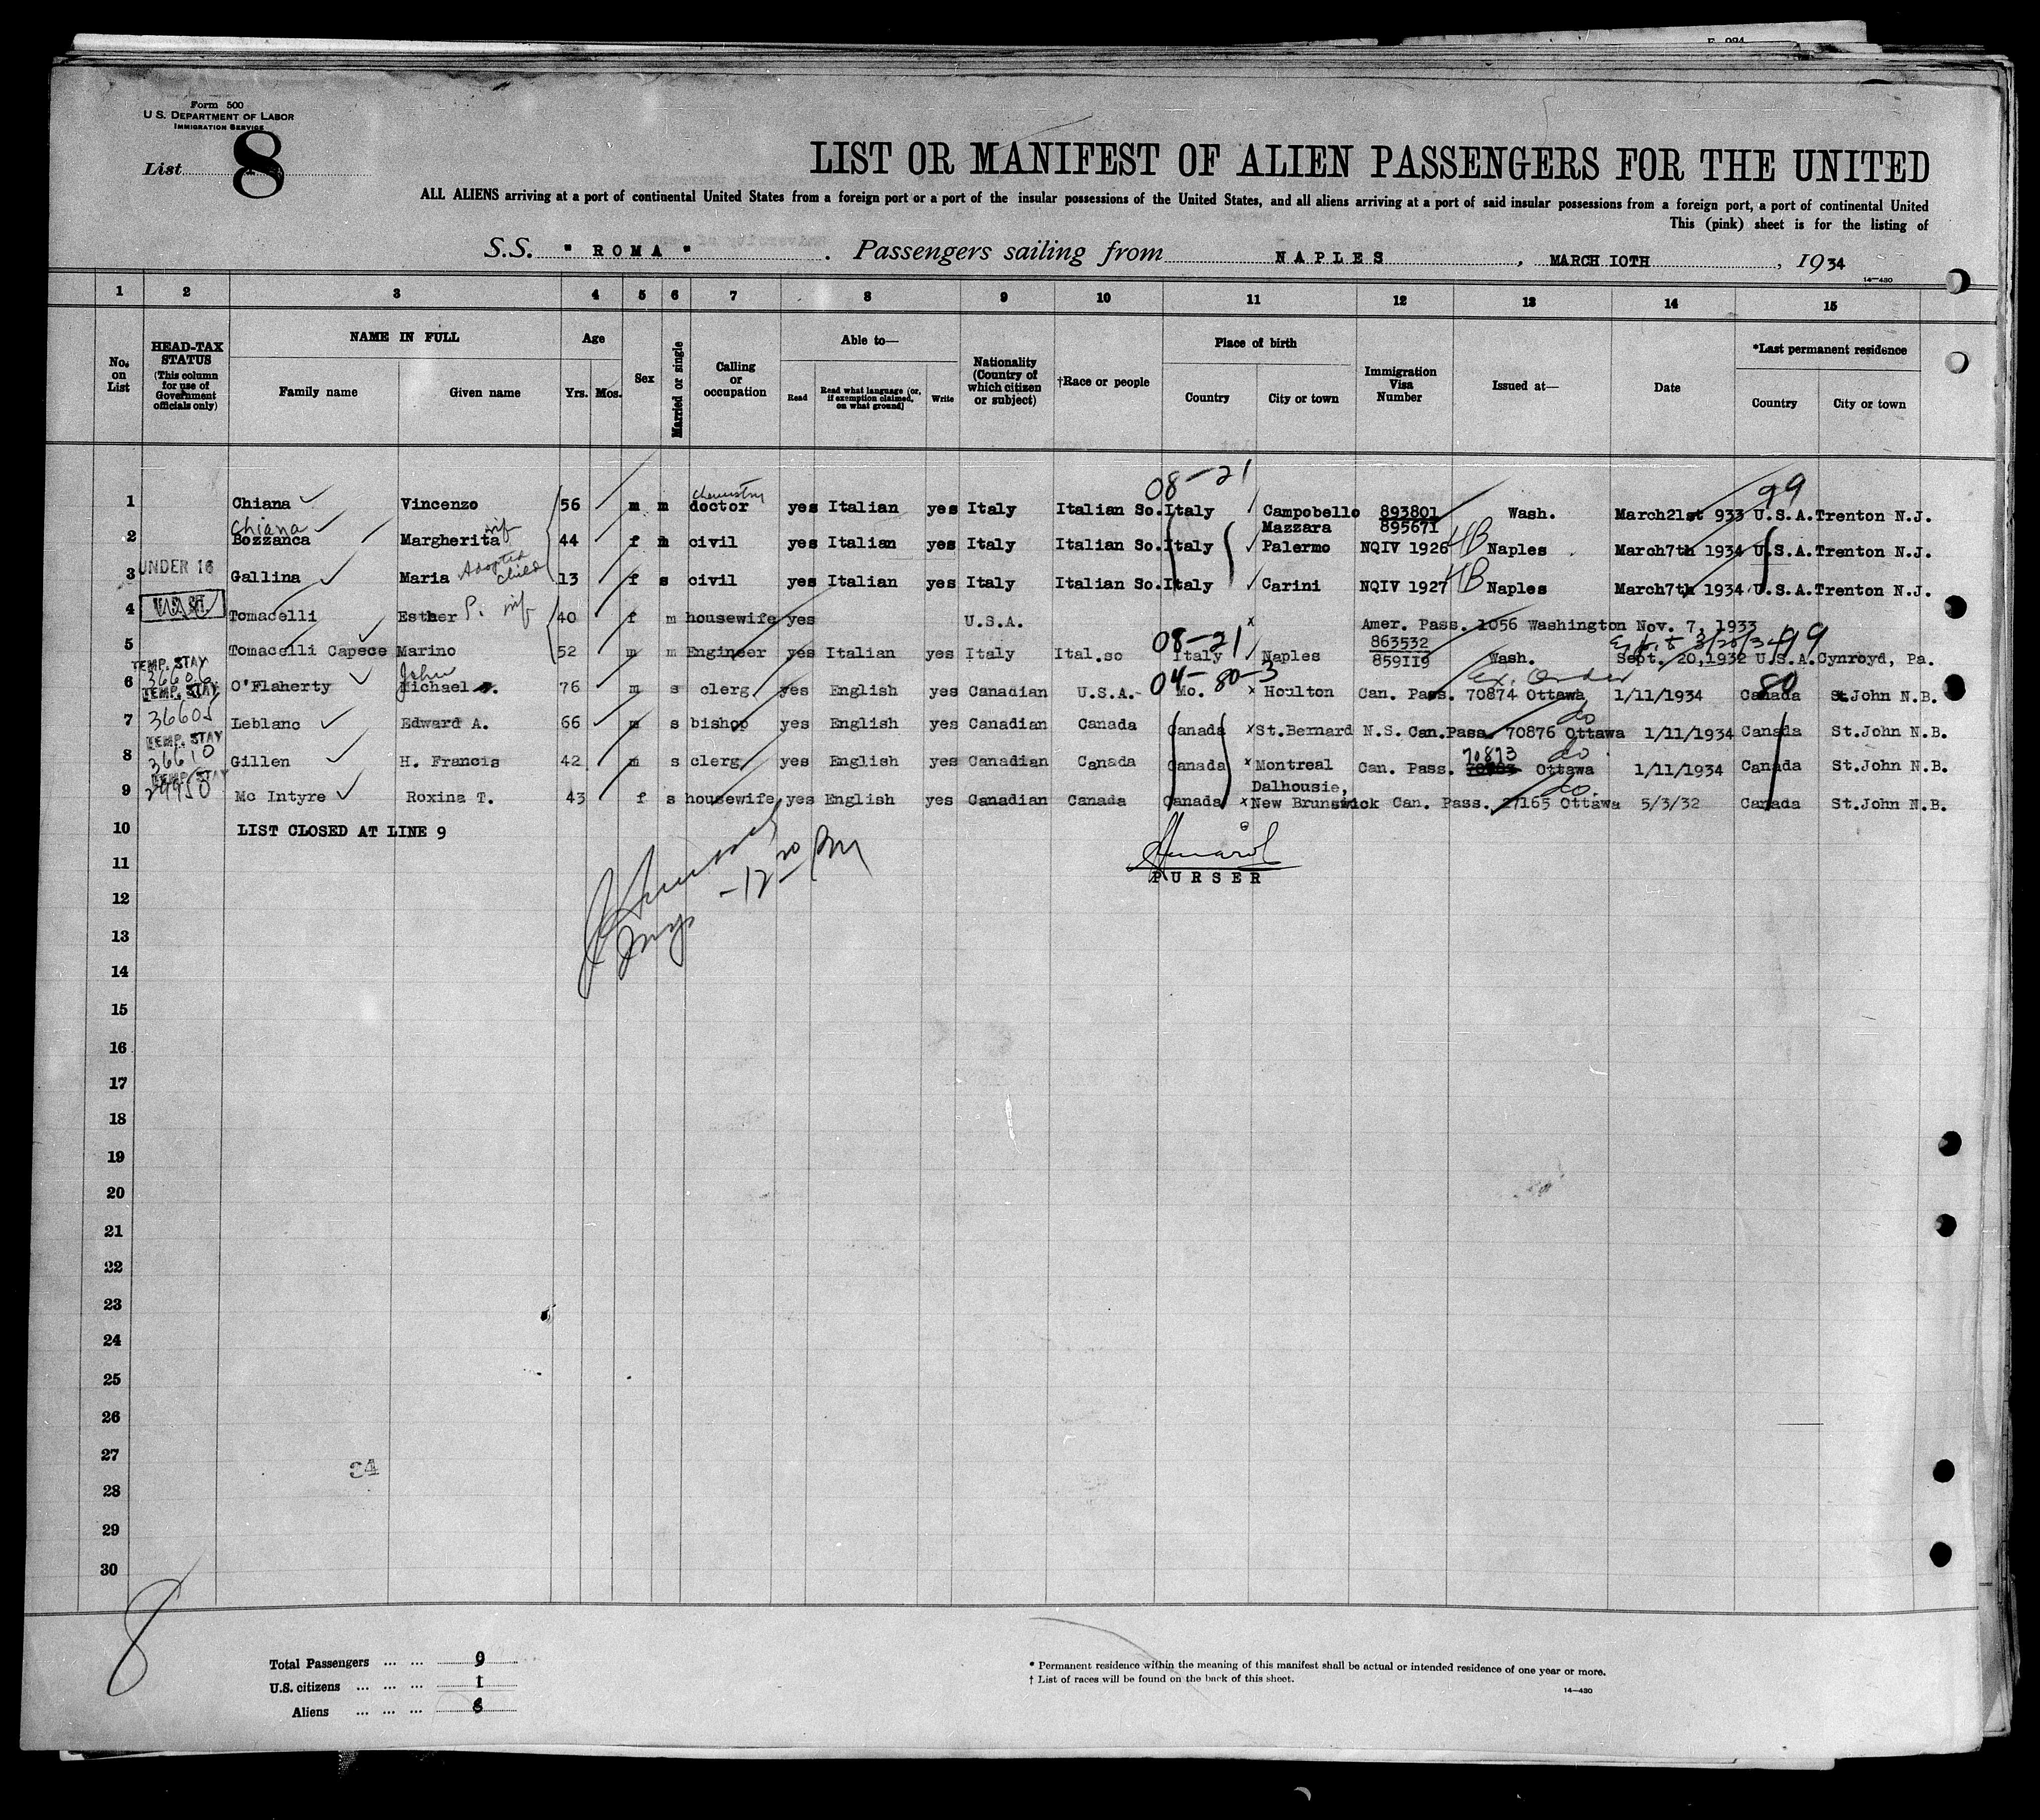 Form 500
U.S. DEPARTMENT OF LABOR
IMMIGRATION SERVICE
List 8
LIST OR MANIFEST OF ALIEN PASSENGERS FOR THE UNITED
ALL ALIENS arriving at a port of continental United States from a foreign port or a port of the insular possessions of the United States, and all aliens arriving at a port of said insular possessions from a foreign port, a port of continental United
This (pink) sheet is for the listing of
S.S. "ROMA". Passengers sailing from NAPLES, MARCH IOTH, 1934
14—430
1 2 3 4 5 6 7 8 9 10 11 12 13 14 15
No. on List
HEAD-TAX STATUS (This column for use of Government officials only)
NAME IN FULL
Family name Given name
Age
Yrs. Mos.
Sex
Married or single
Calling or occupation
Able to—
Read Read what language (or, if exemption claimed, on what ground) Write
Nationality (Country of which citizen or subject)
†Race or people
Place of birth
Country City or town
Immigration Visa Number
Issued at—
Date
*Last permanent residence
Country City or town
08-21 99
chemistry
1 Chiana Vincenzo 56 m m doctor yes Italian yes Italy Italian So. Italy Campobello Mazzara 893801 895671 Wash. March21st 933 U.S.A. Trenton N.J.
Chiana wife
2 Bozzanca Margherita 44 f m civil yes Italian yes Italy Italian So. Italy Palermo NQIV 1926 Naples March7th 1934 U.S.A. Trenton N.J.
UNDER 16 Adopted child
3 Gallina Maria 13 f s civil yes Italian yes Italy Italian So. Italy Carini NQIV 1927 Naples March7th 1934 U.S.A. Trenton N.J.
4 Tomacelli Esther P. wife 40 f m housewife yes U.S.A. x Amer. Pass. 1056 Washington Nov. 7, 1933
08-21 99
5 Tomacelli Capece Marino 52 m m Engineer yes Italian yes Italy Ital.so Italy Naples 863532 859II9 Wash. Sept. 20,1932 U.S.A. Cynroyd, Pa.
TEMP. STAY John 04-80-3 Ex. Order 80
6 O'Flaherty Michael 76 m s clerg. yes English yes Canadian U.S.A. Mo. x Houlton Can. Pass. 70874 Ottawa 1/11/1934 Canada St.John N.B.
TEMP. STAY 36605 do
7 Leblanc Edward A. 66 m s bishop yes English yes Canadian Canada Canada xSt.Bernard N.S. Can.Pass. 70876 Ottawa 1/11/1934 Canada St.John N.B.
TEMP. STAY 36610 70873 do
8 Gillen H. Francis 42 m s clerg. yes English yes Canadian Canada Canada xMontreal Can. Pass. Ottawa 1/11/1934 Canada St.John N.B.
TEMP. STAY 29950 do.
9 Mc Intyre Roxina T. 43 f s housewife yes English yes Canadian Canada Canada Dalhousie, xNew Brunswick Can. Pass. 27165 Ottawa 5/3/32 Canada St.John N.B.
10 LIST CLOSED AT LINE 9
11
PURSER
12
13
14
15
16
17
18
19
20
21
22
23
24
25
26
27
34
28
29
30
8
Total Passengers ... ... 9
U.S. citizens ... ... ... 1
Aliens ... ... ... 8
* Permanent residence within the meaning of this manifest shall be actual or intended residence of one year or more.
† List of races will be found on the back of this sheet.
14—430